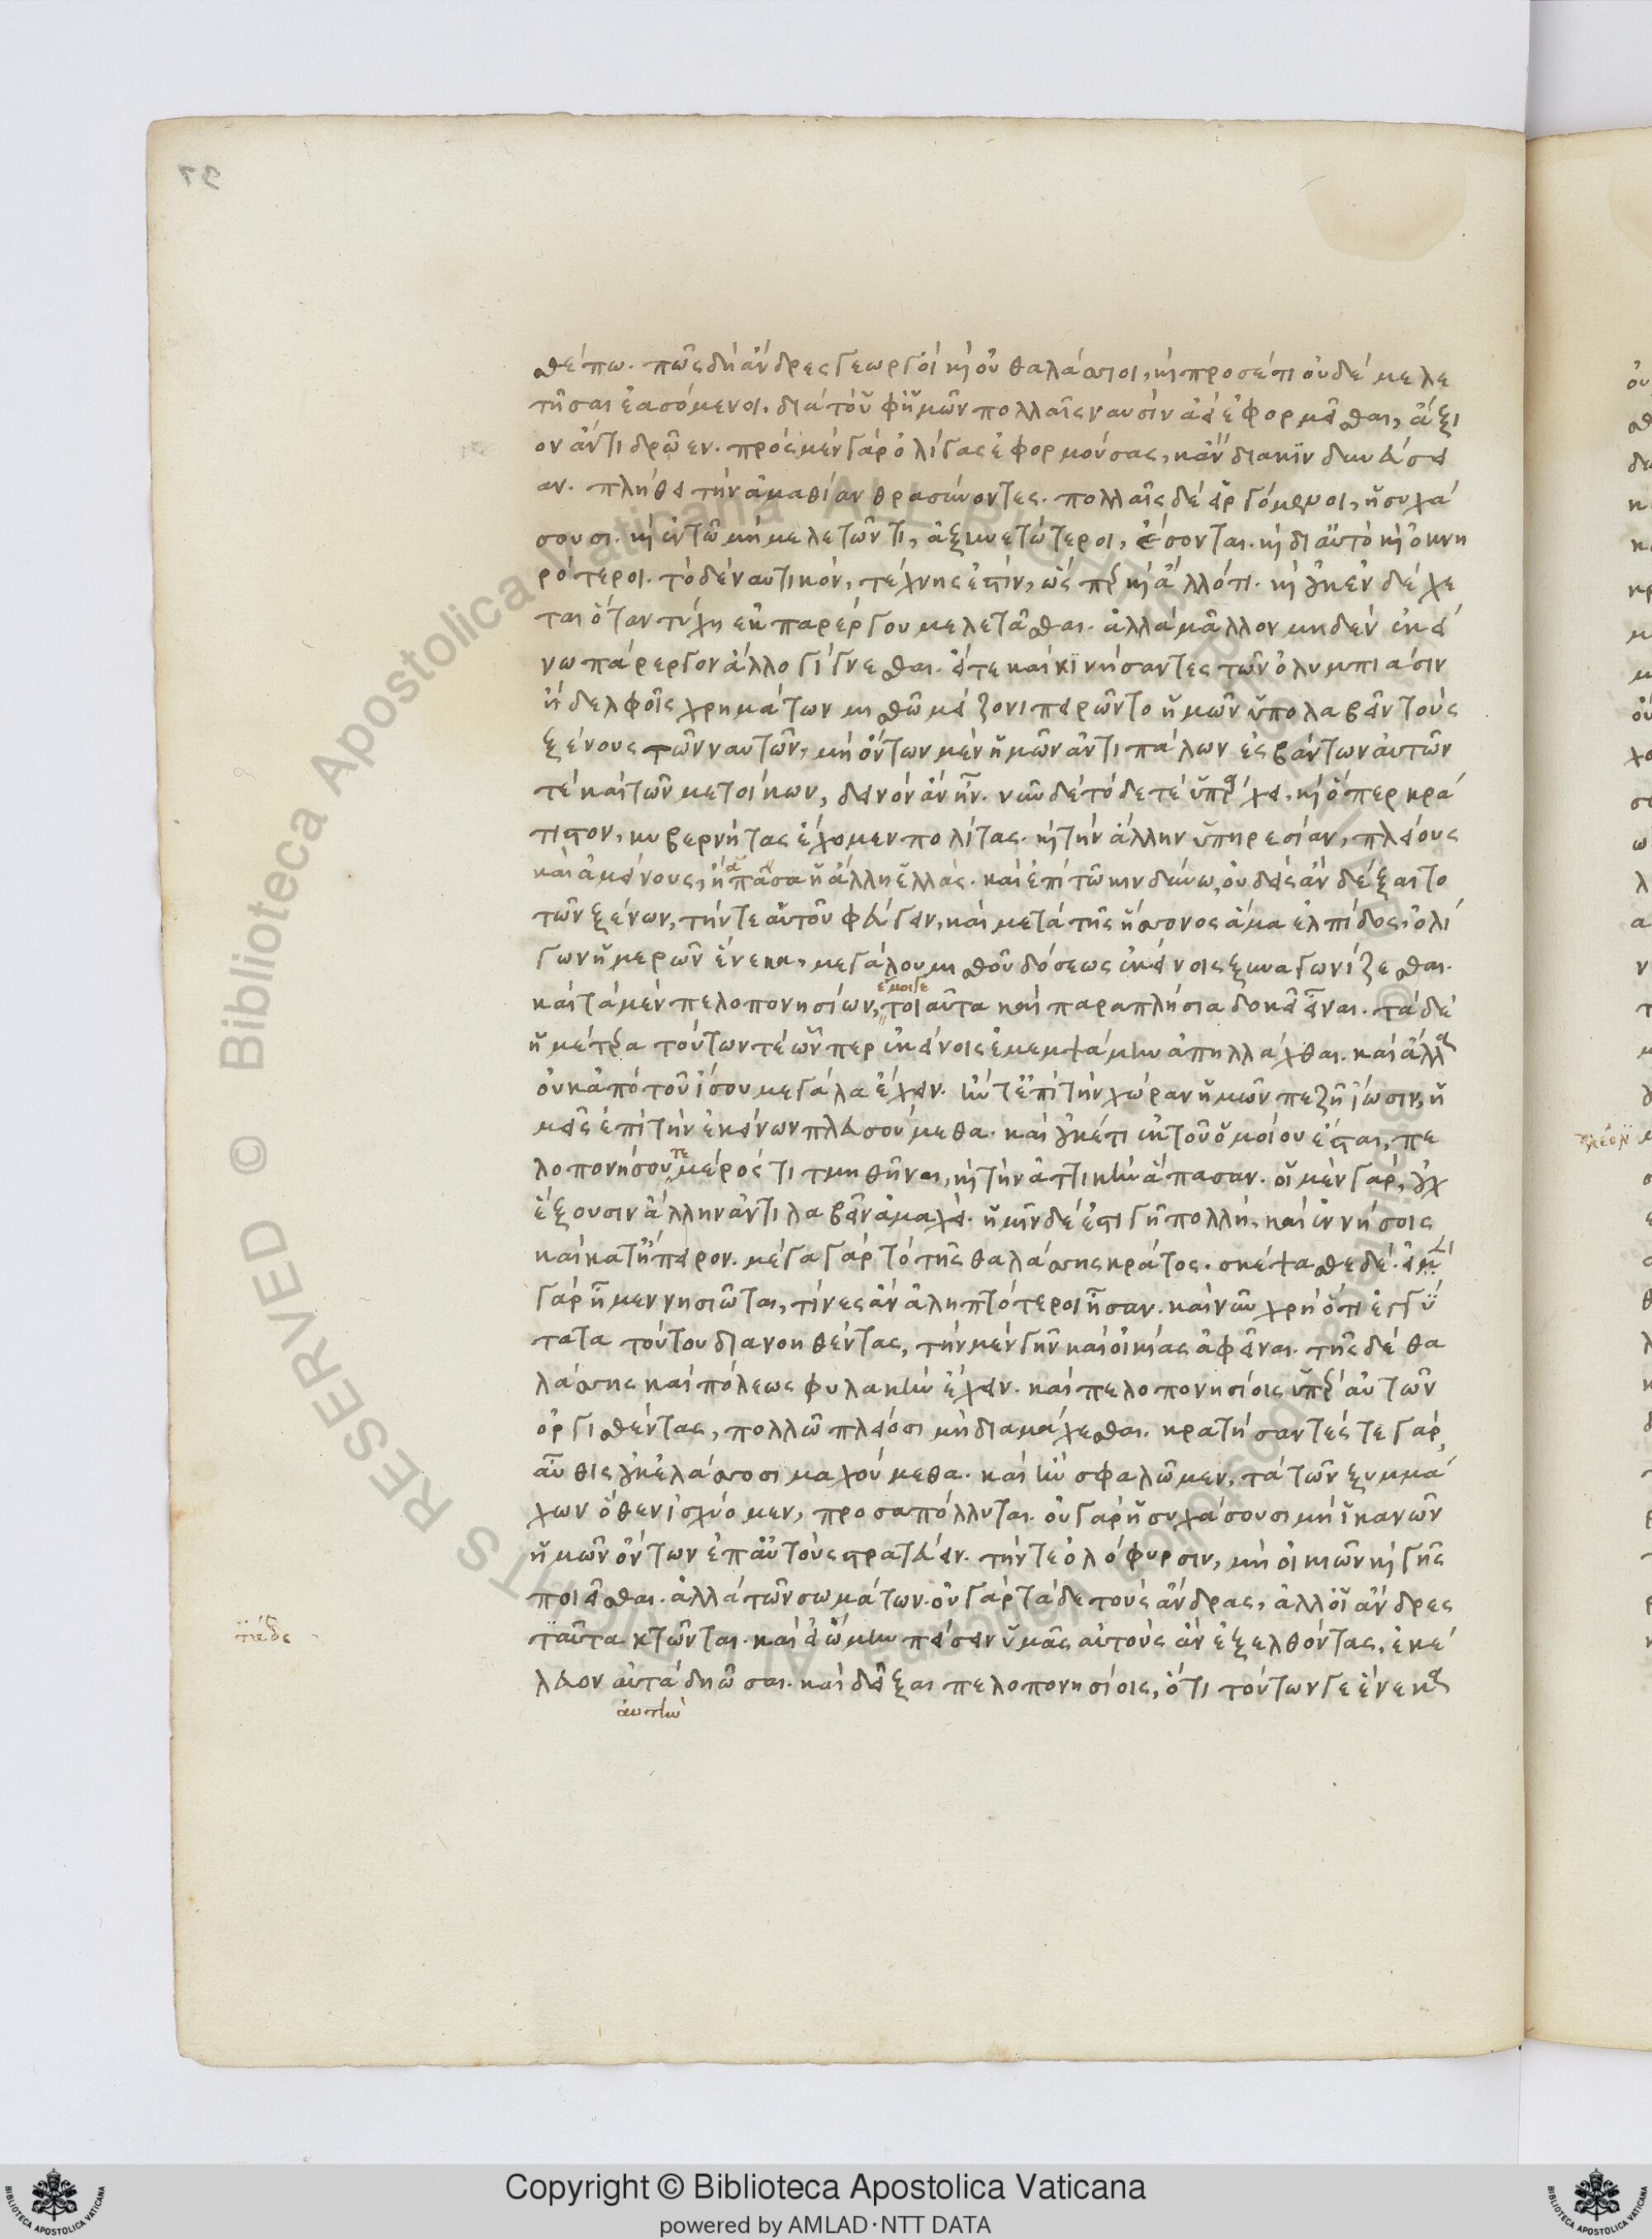 σθέ πω. πῶς δὴ ἄνδρες γεωργοὶ καὶ οὐ θαλάσσιοι, καὶ προσέτι οὐδὲ μελε
τῆσαι ἐασόμενοι, διὰ τὸ ὑφ' ἡμῶν πολλαῖς ναυσὶν ἀεὶ ἐφορμεῖσθαι, ἄξι
ον ἄν τι δρῷεν. πρὸς μὲν γὰρ ὀλίγας ἐφορμούσας, κἂν διακινδυνεύσει
αν. πλήθει τὴν ἀμαθίαν θρασύνοντες. πολλαῖς δὲ εἰργόμενοι, ἡσυχά
σουσι. καὶ ἐν τῷ μὴ μελετῶντι, ἀξυνετώτεροι, ἔσονται. καὶ δι' αὐτὸ καὶ ὀκνη
ρότεροι. τὸ δὲ ναυτικὸν, τέχνης ἐστὶν, ὥσπερ καὶ ἄλλό τι. καὶ οὐκ ἐνδέχε
ται ὅταν τύχη ἐκ παρέργου μελετᾶσθαι. ἀλλὰ μᾶλλον μηδὲν ἐκεί
νω πάρεργον ἄλλο γίγνεσθαι. εἴτε καὶ κινήσαντες τῶν ὀλυμπιάσιν
ἢ δελφοῖς χρημάτων μισθῷ μείζονι πειρῷντο ἡμῶν ὑπολαβεῖν τοὺς
ξένους τῶν ναυτῶν, μὴ ὄντων μὲν ἡμῶν ἀντιπάλων ἐσβάντων αὐτῶν
τὲ καὶ τῶν μετοίκων, δεινὸν ἂν ἦν. νῦν δὲ τό δέ τε ὑπάρχει, καὶ ὅπερ κρά
τιστον, κυβερνήτας ἔχομεν πολίτας. καὶ τὴν ἄλλην ὑπηρεσίαν, πλείους
καὶ ἀμείνους, ἢ πᾶσα ἡ ἄλλη ἑλλάς. καὶ ἐπὶ τῷ κινδύνω, οὐδεὶς ἂν δέξαιτο
τῶν ξένων, τήν τε αὑτοῦ φεύγειν, καὶ μετὰ τῆς ἥσσονος ἅμα ἐλπίδος, ὀλί
γων ἡμερῶν ἕνεκα, μεγάλου μισθοῦ δόσεως ἐκείνοις ξυναγωνίζεσθαι.
ἔμοιγε
καὶ τὰ μὲν πελοπονησίων, τοιαῦτα καὶ παραπλήσια δοκεῖ εἶναι. τὰ δὲ
ἡμέτερα τούτων τὲ ὧνπερ ἐκείνοις ἐμεμψάμην ἀπηλλάχθαι. καὶ ἄλλα
οὐκ ἀπὸ τοῦ ἴσου μεγάλα ἔχειν. ἤν τ' ἐπὶ τὴν χώραν ἡμῶν πεζῇ ἴωσιν, ἡ
μεῖς ἐπὶ τὴν ἐκείνων πλευσούμεθα. καὶ οὐκέτι ἐκ τοῦ ὁμοίου ἔσται, πε
λοπονήσου τε μέρός τι τμηθῆναι, καὶ τὴν ἀττικὴν ἅπασαν. οἱ μὲν γὰρ, οὐχ
ἕξουσιν ἄλλην ἀντιλαβεῖν ἀμαχεί. ἡμῖν δέ ἐστι γῆ πολλὴ, καὶ ἐν νήσοις
καὶ κατ' ἤπειρον. μέγα γὰρ τὸ τῆς θαλάσσης κράτος. σκέψασθε δὲ. εἰ
γὰρ ἦμεν νησιῶται, τίνες ἂν ἀληπτότεροι ἦσαν. καὶ νῦν χρὴ ὅτι ἐγγύ
τατα τούτου διανοηθέντας, τὴν μὲν γῆν καὶ οἰκίας ἀφεῖναι. τῆς δὲ θα
λάσσης καὶ πόλεως φυλακὴν ἔχειν. καὶ πελοπονησίοις ὑπὲρ αὐτῶν
ὀργισθέντας, πολλῷ πλείοσι μὴ διαμάχεσθαι. κρατήσαντές τε γὰρ
αὖθις οὐκ ἐλάσσοσι μαχούμεθα. καὶ ἢν σφαλῶμεν, τὰ τῶν ξυμμά
χων ὅθεν ἰσχύομεν, προσαπόλλυται. οὐ γὰρ ἡσυχάσουσι μὴ ἱκανῶν
ἡμῶν ὄντων ἐπ' αὐτοὺς στρατεύειν. τήν τε ὀλόφυρσιν, μὴ οἰκιῶν καὶ γῆς
ποιεῖσθαι. ἀλλὰ τῶν σωμάτων. οὐ γὰρ τάδε τοὺς ἄνδρας, ἀλλ' οἱ ἄνδρες
ταῦτα κτῶνται. καὶ εἰ ᾤμην πείσειν ὑμᾶς αὐτοὺς ἂν ἐξελθόντας, ἐκέ
λευον αὐτὰ δῃῶσαι. καὶ δεῖξαι πελοπονησίοις, ὅτι τούτων γε ἕνεκα